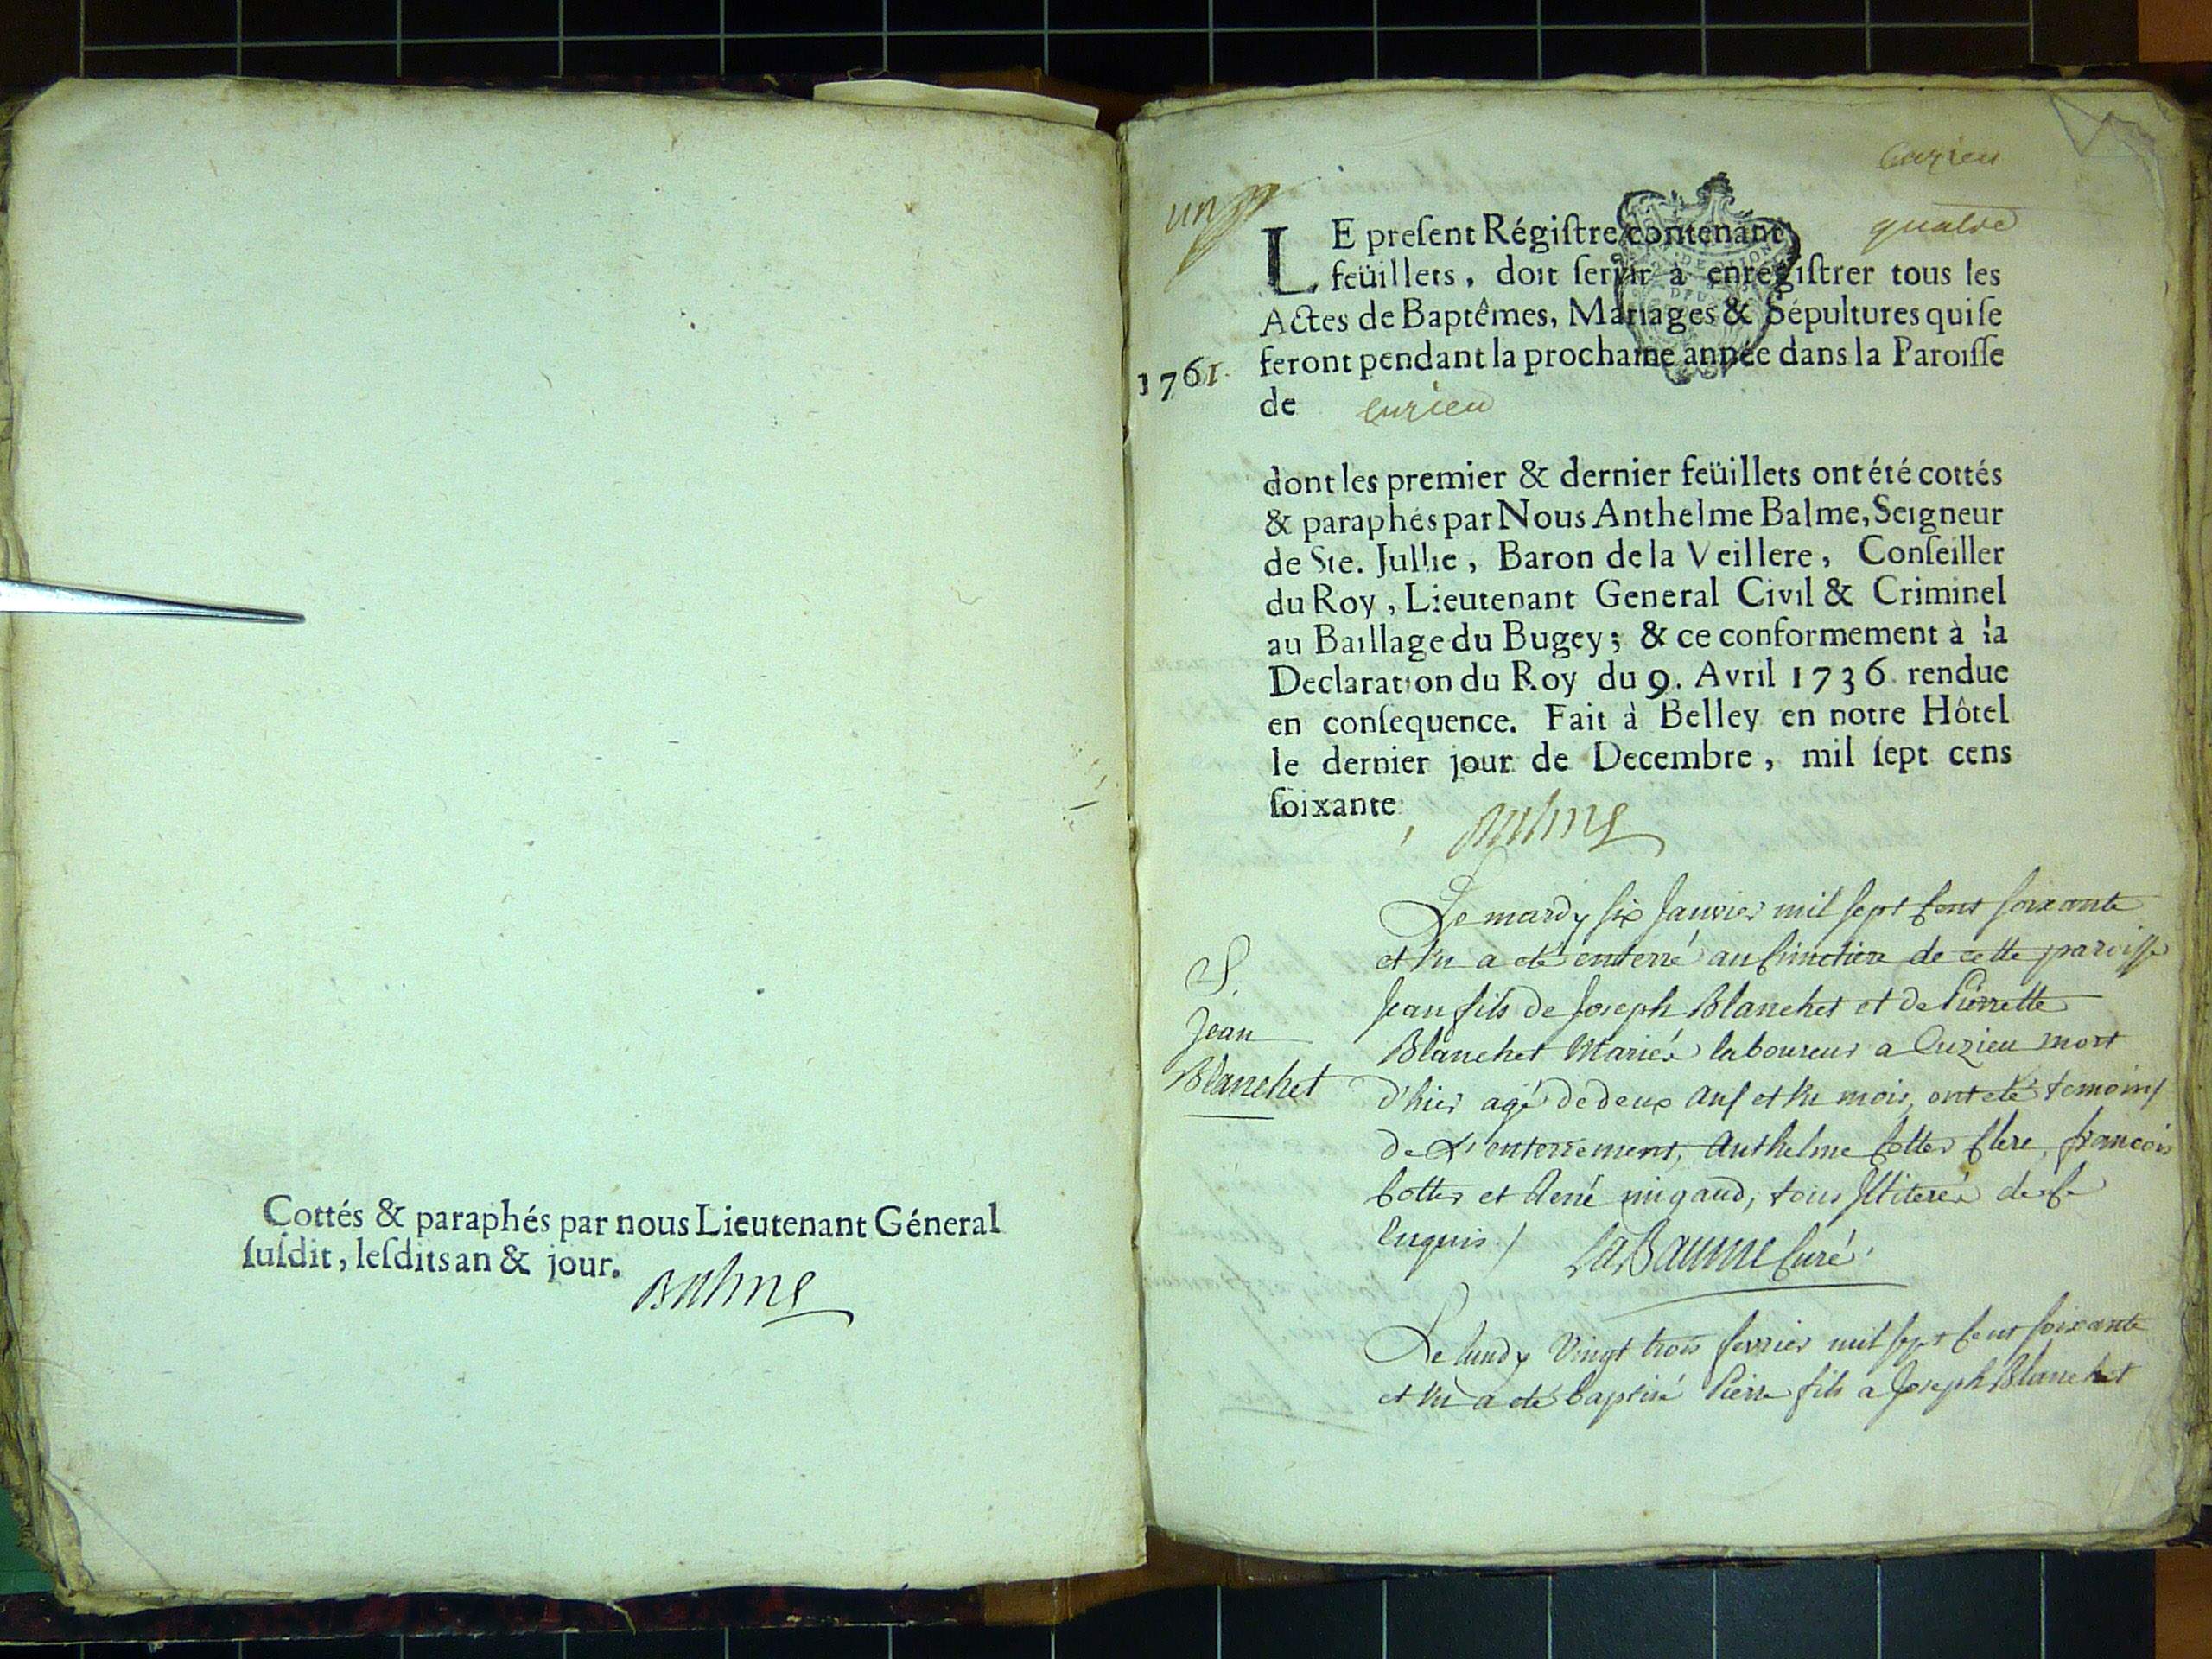 Cottés & paraphés par nous Lieutenant Géneral
ſuſdit, leſdits an & jour.
Balme
Cuzieu
un
quatre
LE preſent Régiſtre contenant
feüillets, doit ſervir à enrégiſtrer tous les
Actes de Baptêmes, Mariages & Sépultures qui ſe
feront pendant la prochaine année dans la Paroiſſe
1761.
de Cuzieu
dont les premier & dernier feüillets ont été cottés
& paraphés par Nous Anthelme Balme, Seigneur
de Ste. Jullie, Baron de la Veillere, Conſeiller
du Roy, Lieutenant General Civil & Criminel
au Baillage du Bugey; & ce conformement à la
Declaration du Roy du 9. Avril 1736 rendue
en conſequence. Fait à Belley en notre Hôtel
le dernier jour de Decembre, mil ſept cens
ſoixante
Balme
Le mardy six Janvier mil sept cent soixante
et un a eté enterré au cimetiere de cette paroisse
Jean fils de Joseph Blanchet et de Pierrette
Blanchet Mariés laboureur a Cuzieu mort
d'hier agé de deux ans et un mois, ont eté temoins
de L'enterrement, Anthelme Cotter Clerc, francois
Cotter et René migaud, tous Illiterés de ce
Enquis /
LaBaume Curé
S.
Jean
Blanchet
Le lundy Vingt trois fevrier mil sept cent soixante
et un a eté baptisé Pierre fils a Joseph Blanchet